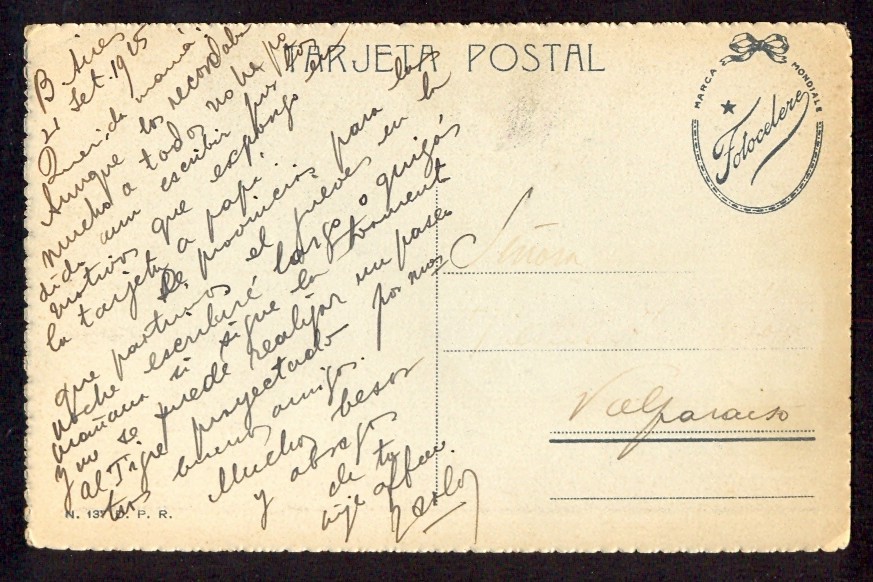 TARJETA POSTAL
MARCA MONDIALE
Fotocelere
B Aires
21 Set. 1925
Querida mamá:
Aunque los recordaba
mucho a todos no he po
dido aun escribir por los
motivos que expongo en
la tarjeta a papi.
De provincias para las
que partimos el jueves en la
noche escribiré largo o quizás
mañana si sigue la torment
y no se puede realizar un paseo
al Tigre proyectado por nues
tros buenos amigos.
Muchos besos
y abrazos
de tu
hijo affmo.
Carlos
Señora
Valparaiso
N. 137 D. P. R.